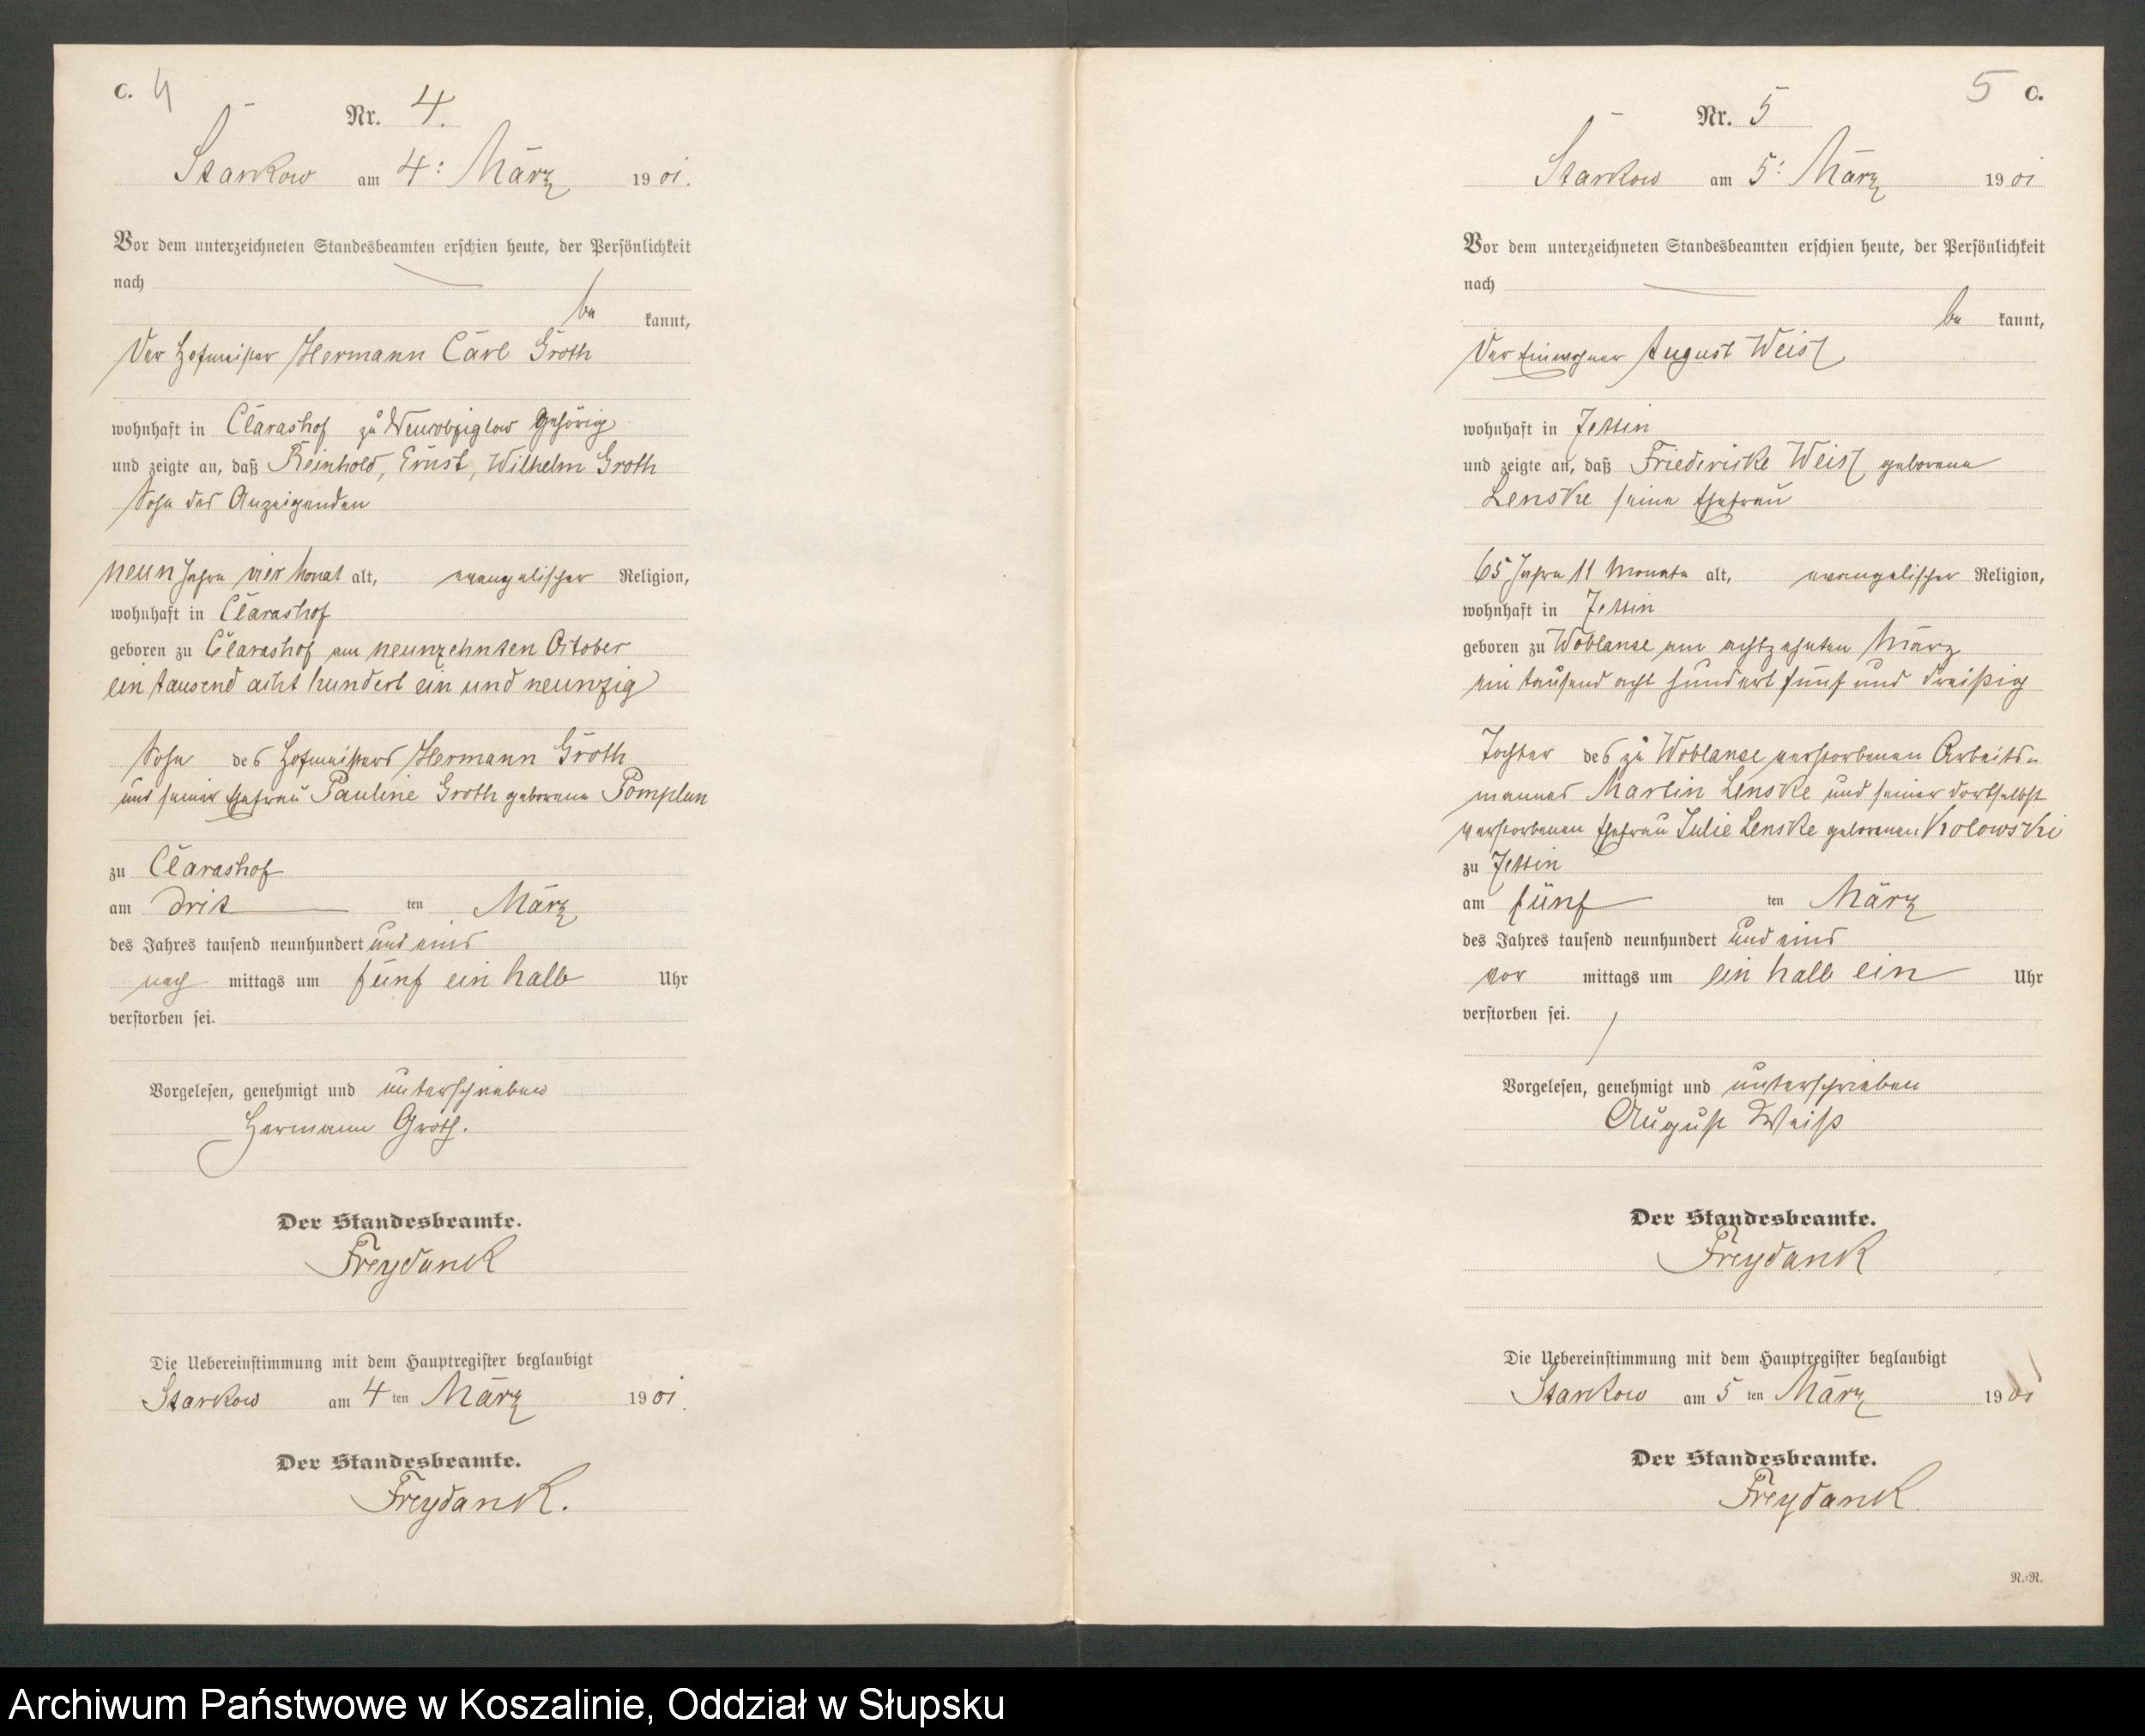 C. 4
Nr. 4.
Starkow am 4: März 1901.
Vor dem unterzeichneten Standesbeamten erschien heute, der Persönlichkeit
nach
be kannt,
der Hofmeister Hermann Carl Groth
wohnhaft in Clarashof zu Neukobziglow gehörig
und zeigte an, daß Reinhold, Ernst, Wilhelm Groth
Sohn des Anzeigenden
neun Jahre vier Monat alt, evangelischer Religion,
wohnhaft in Clarashof
geboren zu Clarashof am neunzehnten October
ein tausend acht hundert ein und neunzig
Sohn des Hofmeisters Hermann Groth
und seiner Ehefrau Pauline Groth geborene Pomplun
zu Clarashof
am drit ten März
des Jahres tausend neunhundert und eins
nach mittags um fünf ein halb Uhr
verstorben sei.
Vorgelesen, genehmigt und unterschrieben
Hermann Groth.
Der Standesbeamte.
Freydank
Die Uebereinstimmung mit dem Hauptregister beglaubigt
Starkow am 4 ten März 1901.
Der Standesbeamte.
Freydank.
5 C.
Nr. 5
Starkow am 5: März 1901
Vor dem unterzeichneten Standesbeamten erschien heute, der Persönlichkeit
nach
be kannt,
der Einwohner August Weiß
wohnhaft in Jettin
und zeigte an, daß Friedericke Weiß geborene
Lenske seine Ehefrau
65 Jahre 11 Monate alt, evangelischer Religion,
wohnhaft in Jettin
geboren zu Woblanse am achtzehnten März
ein tausend acht hundert fünf und dreißig
Tochter des zu Woblanse verstorbenen Arbeits-
mannes Martin Lenske und seiner dortselbst
verstorbenen Ehefrau Julie Lenske geborenen Krolowski
zu Jettin
am fünf ten März
des Jahres tausend neunhundert und eins
vor mittags um ein halb ein Uhr
verstorben sei.
Vorgelesen, genehmigt und unterschrieben
August Weiß
Der Standesbeamte.
Freydank
Die Uebereinstimmung mit dem Hauptregister beglaubigt
Starkow am 5 ten März 1901
Der Standesbeamte.
Freydank.
R.=R.
Archiwum Państwowe w Koszalinie, Oddział w Słupsku